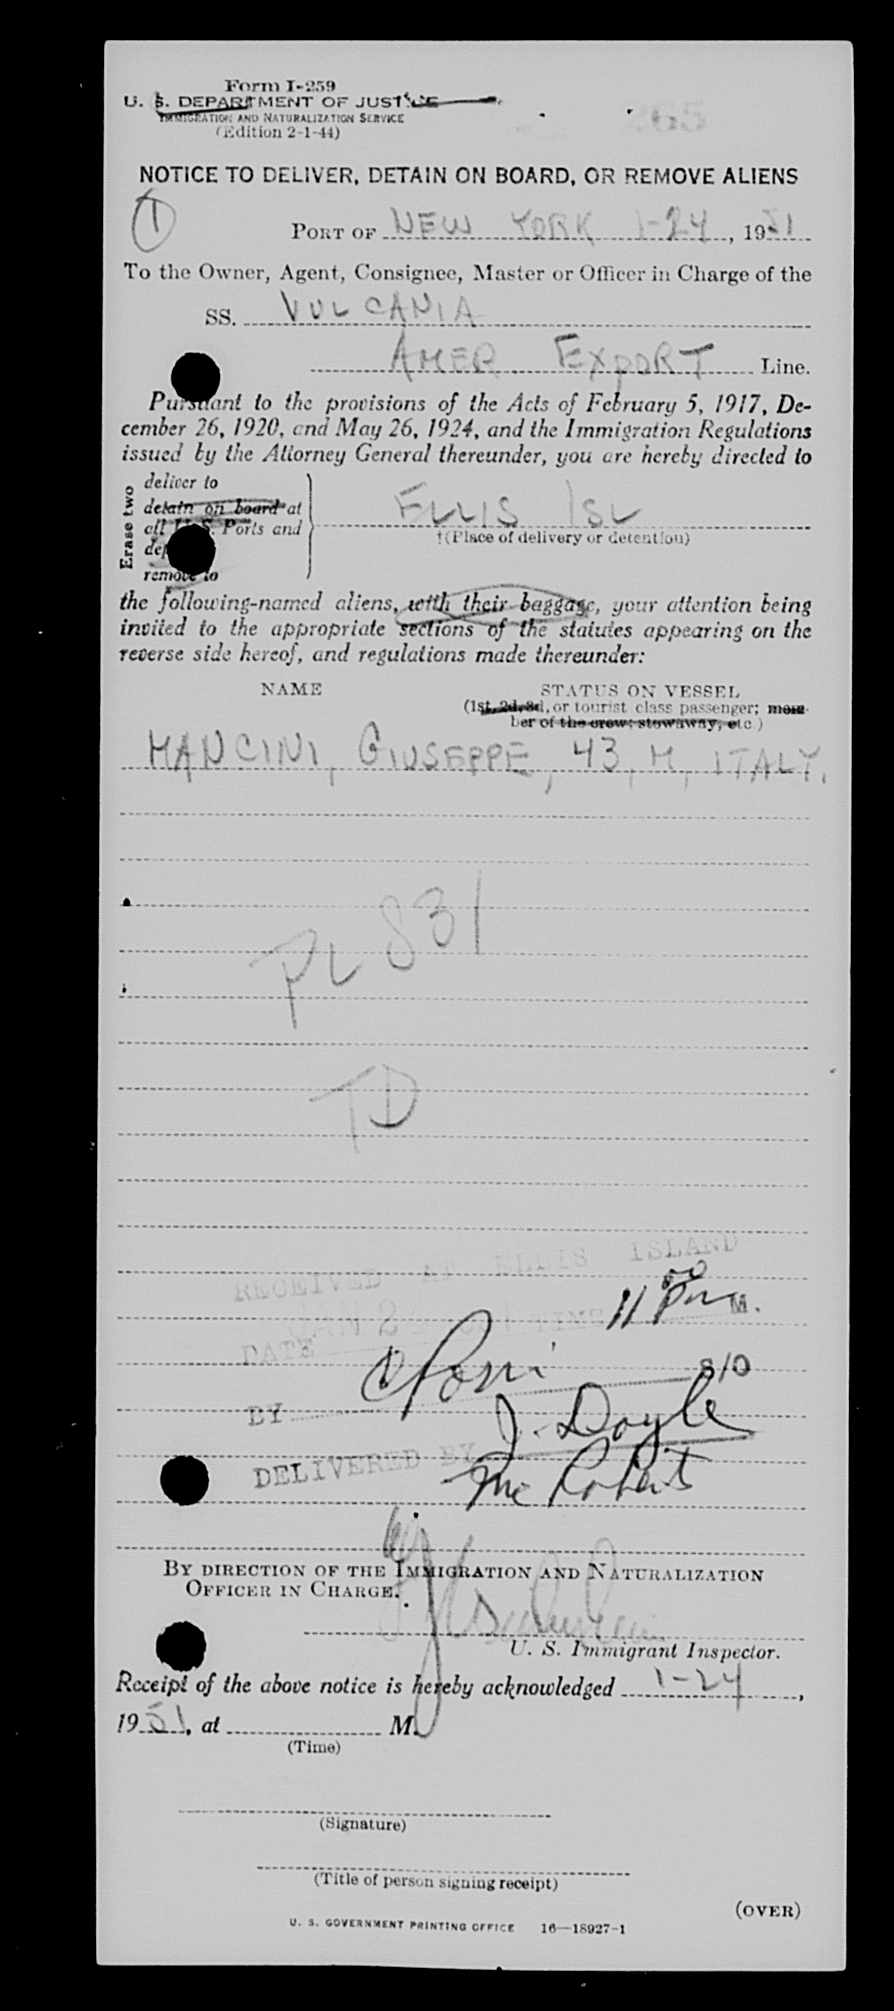 Form I-259
U. S. DEPARTMENT OF JUSTICE
IMMIGRATION AND NATURALIZATION SERVICE
(Edition 2-1-44)
265
NOTICE TO DELIVER, DETAIN ON BOARD, OR REMOVE ALIENS
1
PORT OF NEW YORK 1-24, 1951
To the Owner, Agent, Consignee, Master or Officer in Charge of the
SS. VULCANIA
AMER EXPORT Line.
Pursuant to the provisions of the Acts of February 5, 1917, De-
cember 26, 1920, and May 26, 1924, and the Immigration Regulations
issued by the Attorney General thereunder, you are hereby directed to
Erase two
deliver to
detain on board at
all U. S. Ports and
remove to
ELLIS ISL
†(Place of delivery or detention)
the following-named aliens, with their baggage, your attention being
invited to the appropriate sections of the statutes appearing on the
reverse side hereof, and regulations made thereunder:
NAME STATUS ON VESSEL
(1st, 2d, 3d, or tourist class passenger; mem-
ber of the crew; stowaway, etc.)
MANCINI, GIUSEPPE, 43, M, ITALY.
PL 831
TD
RECEIVED AT ELLIS ISLAND
DATE JAN 24 1951 TIME 11 50 Pm M.
BY
J. Doyle
DELIVERED BY Mc Roberts
BY DIRECTION OF THE IMMIGRATION AND NATURALIZATION
OFFICER IN CHARGE.
U. S. Immigrant Inspector.
Receipt of the above notice is hereby acknowledged 1-24,
1951, at M.
(Time)
(Signature)
(Title of person signing receipt)
(OVER)
U. S. GOVERNMENT PRINTING OFFICE 16—18927-1